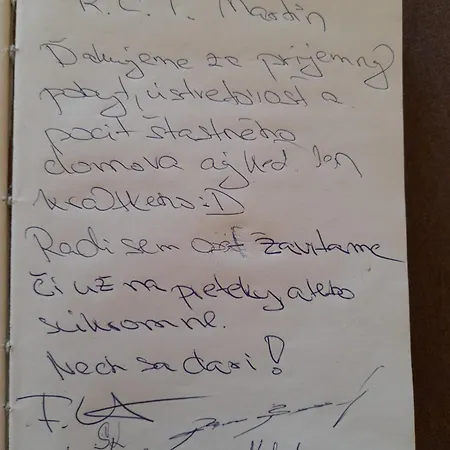 R.C.T. Martin
Ďakujeme za príjemný
pobyt, ústretovosť a
pocit šťastného
domova aj keď len
krátkeho :D
Radi sem opäť zavítame
či už na preteky alebo
súkromne.
Nech sa darí!
SK